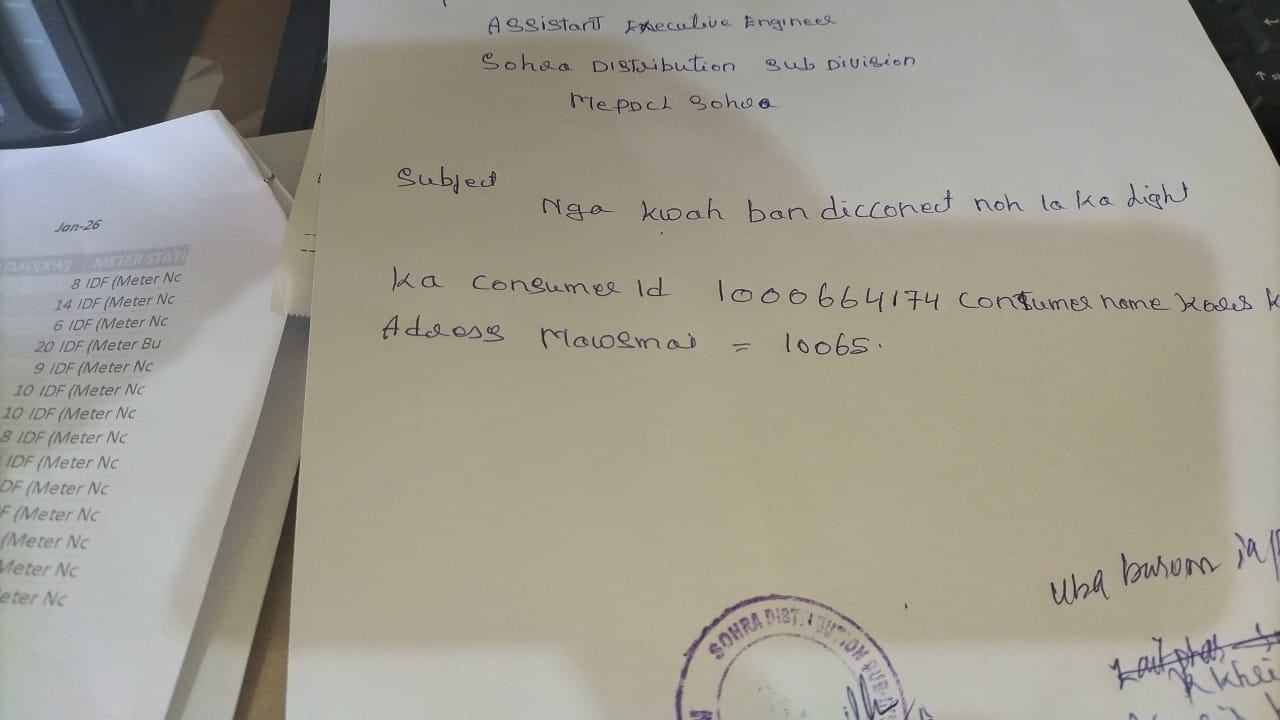 Assistant Executive Engineer
Sohra Distribution Sub Division
Mepdcl Sohra
Subject
Nga kwah ban dicconect noh ia ka Light
Ka consumer Id 1000664174 Consumer name
Address Mawsmai = 10065.
Uba burom
SOHRA DISTRIBUTION SUB-
Jan-26
LOAD(KW) METER STATU
8 IDF (Meter Nc
14 IDF (Meter Nc
6 IDF (Meter Nc
20 IDF (Meter Bu
9 IDF (Meter Nc
10 IDF (Meter Nc
10 IDF (Meter Nc
8 IDF (Meter Nc
IDF (Meter Nc
DF (Meter Nc
F (Meter Nc
(Meter Nc
Meter Nc
eter Nc